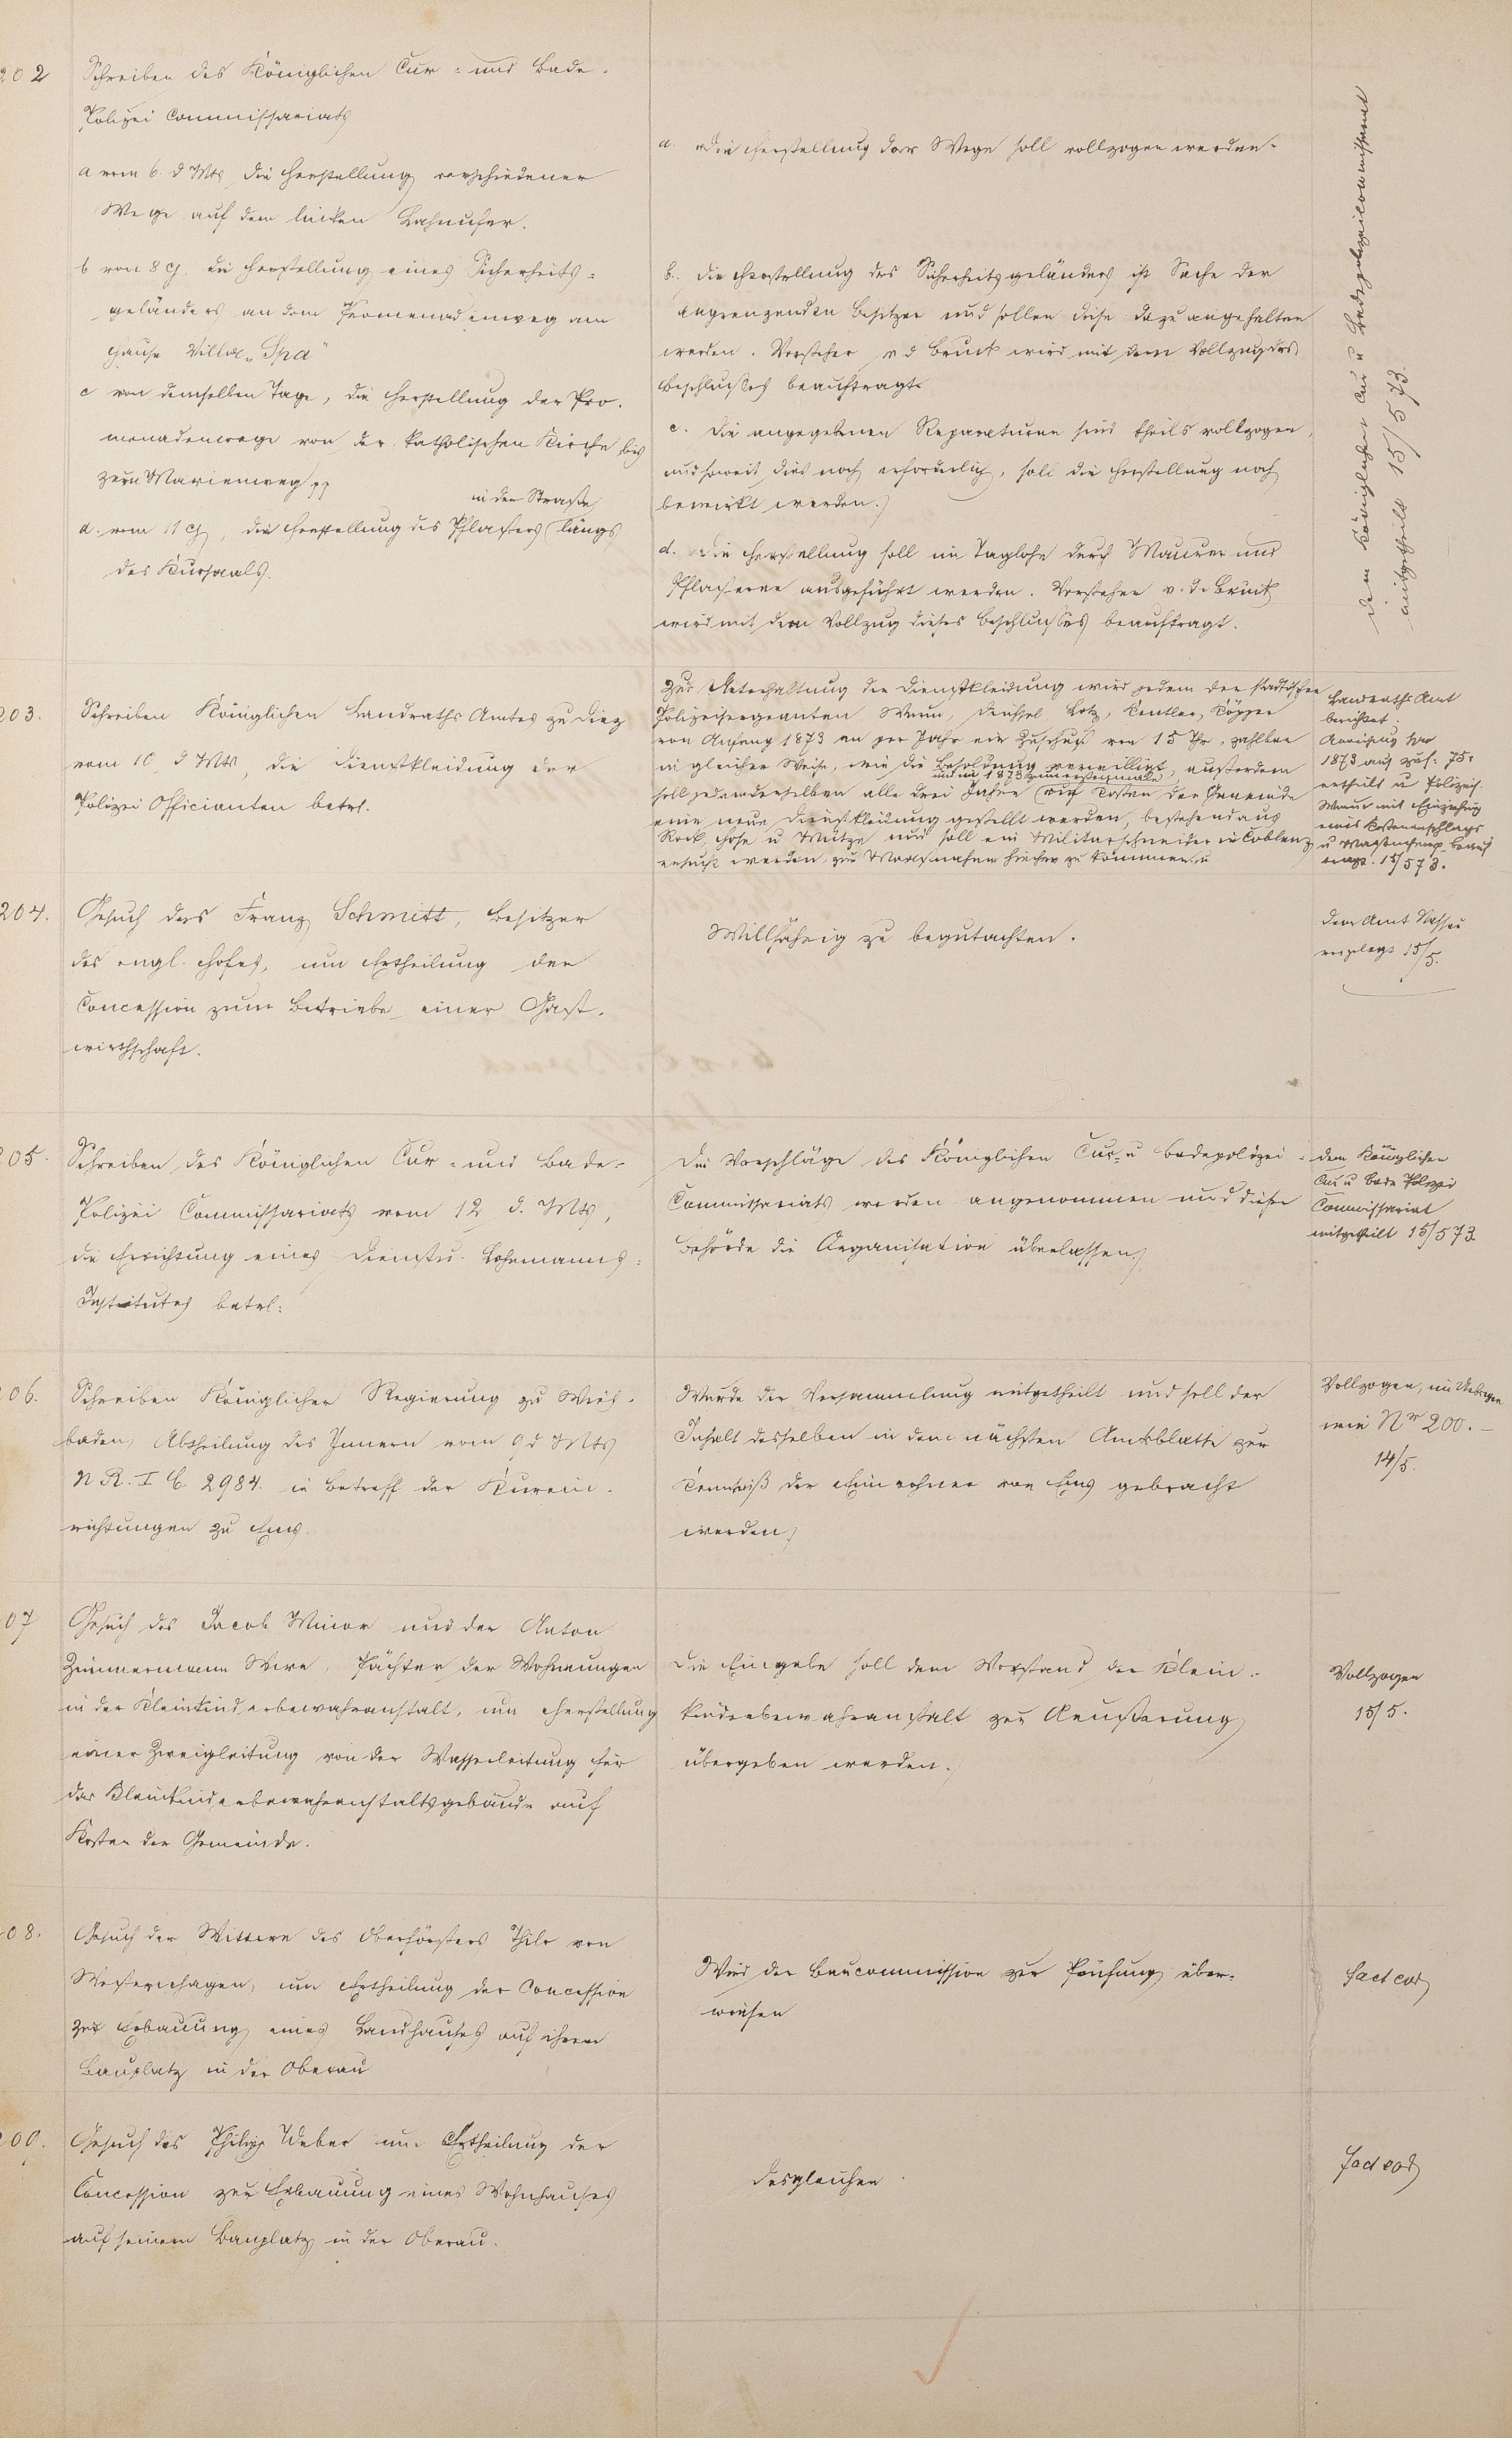 202
Schreiben des Königlichen Cur- und Bade-
Polizei Commissariats
a vom 6. d Mts, die Herstellung verschiedener
Wege auf dem linken Lahnufer.
b von 8 ej. die Herstellung eines Sicherheits-
geländers an dem Promenadenweg am
Hause Villa „Spa"
c von demselben Tage, die Herstellung der Pro-
menadenwege von der katholischen Kirche bis
zum Marienweg pp
in der Straße
d. vom 11 ej, die Herstellung des Pflasters längs
des Kursaals.
a. Die Herstellung der Wege soll vollzogen werden.
b. Die Herstellung des Sicherheitsgeländers ist Sache der
angrenzenden Besitzer und sollen diese dazu angehalten
werden. Vorsteher v d Bruck wird mit dem Vollzug des
Beschlusses beauftragt.
c. Die angegebenen Reparaturen sind theils vollzogen,
und soweit dies noch erforderlich, soll die Herstellung noch
bewirkt werden.
d. Die Herstellung soll im Taglohn durch Maurer und
Pflasterer ausgeführt werden. Vorsteher v. d. Bruck
wird mit dem Vollzug dieses Beschlusses beauftragt.
Dem Königlichen Cur u Badepolizeicommissariat
mitgetheilt 15/5 73.
203.
Schreiben Königlichen Landraths Amtes zu Diez
vom 10 d Mts, die Dienstkleidung der
Polizei Officianten betrf.
Zur Unterhaltung der Dienstkleidung wird jedem der städtischen
Polizeisergeanten Wenn, Lotz, Kentler,
von Anfang 1873 an per Jahr ein Zuschuß von 15 Thr, zahlbar
in gleicher Weise, wie die Besoldung verwilligt, außerdem
und in 1873 zum erstenmale
soll jedem derselben alle drei Jahre auf Kosten der Gemeinde
eine neue Dienstkleidung gestellt werden, bestehend aus
Rock, Hose u Mütze und soll ein Militärschneider in Coblenz
ersucht werden, zum Maasnehmen hierher zu kommen.
Landraths Amt
berichtet.
Anweisung für
1873 auf zus. 75.
ertheilt u Polizeis.
Wenn mit Einziehung
eines Kostenanschlags
u Maasnehmen beauf
tragt. 15/5 73.
204.
Gesuch des Franz Schmitt, Besitzer
des engl. Hofes, um Ertheilung der
Concession zum Betriebe einer Gast-
wirthschaft.
Willfährig zu begutachten.
dem Amt Nassau
vorgelegt 15/5.
205.
Schreiben des Königlichen Cur- und Bade-
Polizei Commissariats vom 12 d. Mts,
die Errichtung eines Dienst u. Lohnmanns-
Institutes betrf:
Die Vorschläge des Königlichen Cur- u Badepolizei-
Commissariats werden angenommen und dieser
Behörde die Organisation überlassen.
dem Königlichen
Cur u Bade Polizei
Commissariat
mitgetheilt 15/5 73.
206.
Schreiben Königlicher Regierung zu Wies-
baden, Abtheilung des Innern vom 9 d Mts
N R. I C. 2984. in Betreff der Kurein-
richtungen zu Ems.
Wurde der Versammlung mitgetheilt und soll der
Inhalt desselben in dem nächsten Amtsblatte zur
Kenntniß der Einwohner von Ems gebracht
werden.
Vollzogen, im Uebrigen
wie Nr 200.-
14/5.
207
Gesuch des Jacob Minor und der Anton
Zimmermann Wwe, Pächter der Wohnungen
in der Kleinkinderbewahranstalt, um Herstellung
einer Zweigleitung von der Wasserleitung für
das Kleinkinderbewahranstaltsgebäude auf
Kosten der Gemeinde.
Die Eingabe soll dem Vorstand der Klein-
kinderbewahranstalt zur Aeußerung
übergeben werden.
Vollzogen
15/5.
208.
Gesuch der Wittwe des Oberförsters Thilo von
Westernhagen, um Ertheilung der Concession
zur Erbauung eines Landhauses auf ihrem
Bauplatz in der Oberau
Wird der Baucommission zur Prüfung über-
wiesen
fact eod
209.
Gesuch des Philipp Weber um Ertheilung der
Concession zur Erbauung eines Wohnhauses
auf seinem Bauplatz in der Oberau.
desgleichen
fact eod